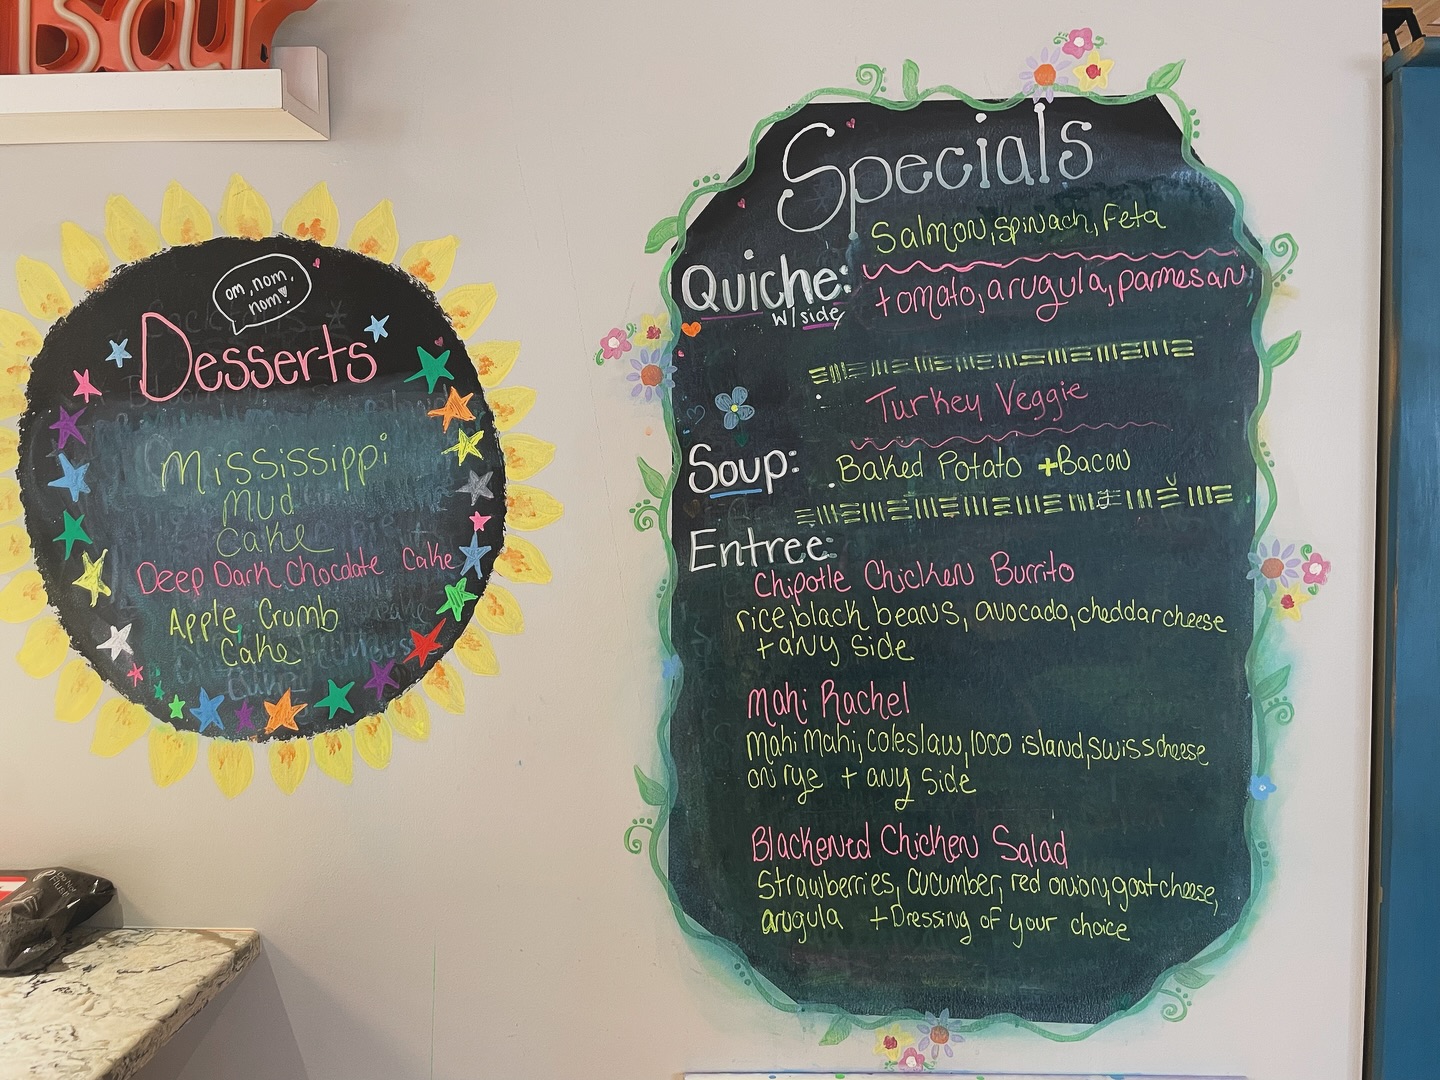 Bar
om, nom,
nom
Desserts
Mississippi
Mud
Cake
Deep Dark Chocolate Cake
Apple Crumb
Cake
Specials
Salmon, spinach, Feta
Quiche:
w/side
tomato, arugula, parmesan
Turkey Veggie
Soup:
Baked Potato +Bacon
Entree:
Chipotle Chicken Burrito
rice, black beans, avocado, cheddar cheese
+ any side
Mahi Rachel
Mahi Mahi, coleslaw, 1000 island, swiss cheese
on rye + any side
Blackened Chicken Salad
Strawberries, cucumber, red onion, goat cheese,
arugula + Dressing of your choice